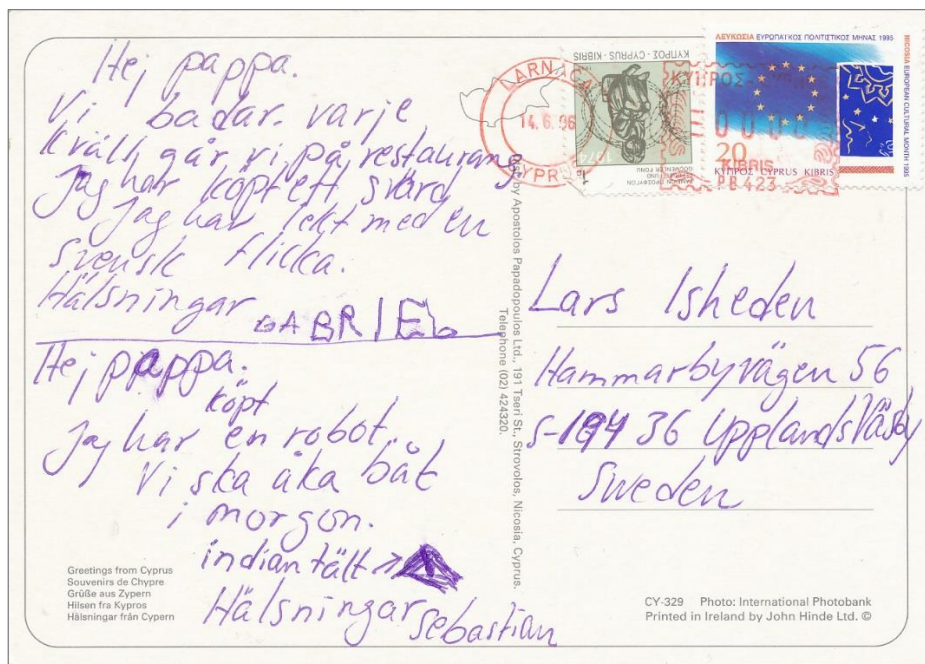 Hej pappa.
Vi badar. varje
kväll går vi på restaurang.
Jag har köpt ett svärd
Jag har lekt med en
svensk flicka.
Hälsningar GABRIEL
Hej pappa.
köpt
Jag har en robot.
Vi ska åka båt
i morgon.
indiantält →
Hälsningar Sebastian
Greetings from Cyprus
Souvenirs de Chypre
Grüße aus Zypern
Hilsen fra Kypros
Hälsningar från Cypern
by Apostolos Papadopoulos Ltd., 191 Tseri St., Strovolos, Nicosia, Cyprus.
Telephone (02) 424320.
LARNACA
14.6.96
ΚΥΠΡΟΣ - CYPRUS - KIBRIS
1c
1974
REFUGEE FUND
ΛΕΥΚΩΣΙΑ ΕΥΡΩΠΑΪΚΟΣ ΠΟΛΙΤΙΣΤΙΚΟΣ ΜΗΝΑΣ 1995
NICOSIA EUROPEAN CULTURAL MONTH 1995
20
ΚΥΠΡΟΣ CYPRUS KIBRIS
KIBRIS
PB423
Lars Isheden
Hammarbyvägen 56
S-194 36 Upplands Väsby
Sweden
CY-329 Photo: International Photobank
Printed in Ireland by John Hinde Ltd. ©